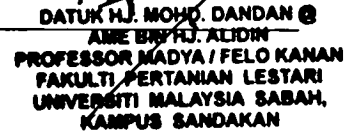 DATUK HJ. MOHD. DANDAN @
AME BIN HJ. ALIDIN
PROFESSOR MADYA / FELO KANAN
FAKULTI PERTANIAN LESTARI
UNIVERSITI MALAYSIA SABAH,
KAMPUS SANDAKAN